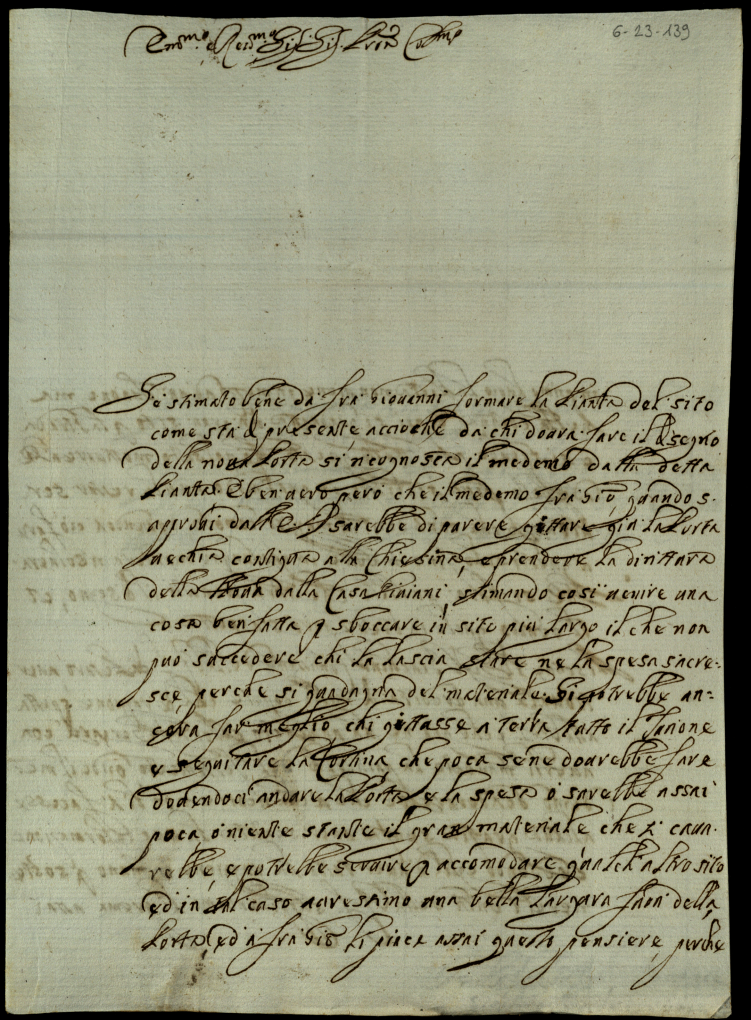 6-23-139
Em.mo e Rev.mo Sig. Sig. Pron. Col.mo
S'è stimato bene da frà Giovanni formare la Pianta del sito
come stà di presente, accioche da chi dovrà fare il disegno
della nova Porta si ricognosca il medemo dalla detta
Pianta. È ben vero però che il medemo frà Gio. quando s'
approvi dall' sarebbe di parere gittare giù la Porta
vecchia contigua alla Chiesina, e prendere la dirittura
della dalla Casa Viviani stimando così venire una
cosa ben fatta p sboccare in sito più largo il che non
può succedere chi la lascia stare ne la spesa s'acre-
sce, perche si guadagna del materiale. Si potrebbe an-
cora far meglio chi gittasse a Terra tutto il
e seguitare la Cortina che poca se ne dovrebbe fare
dovendoci andare la Porta e la spesa ò sarebbe assai
poca ò niente stante il gran materiale che si cava-
rebbe, e potrebbe servire p accomodare qualch'altro sito
ed in tal caso averessimo una bella largura fuori della
Porta, ed à frà Gio. li piace assai questo pensiere, perche